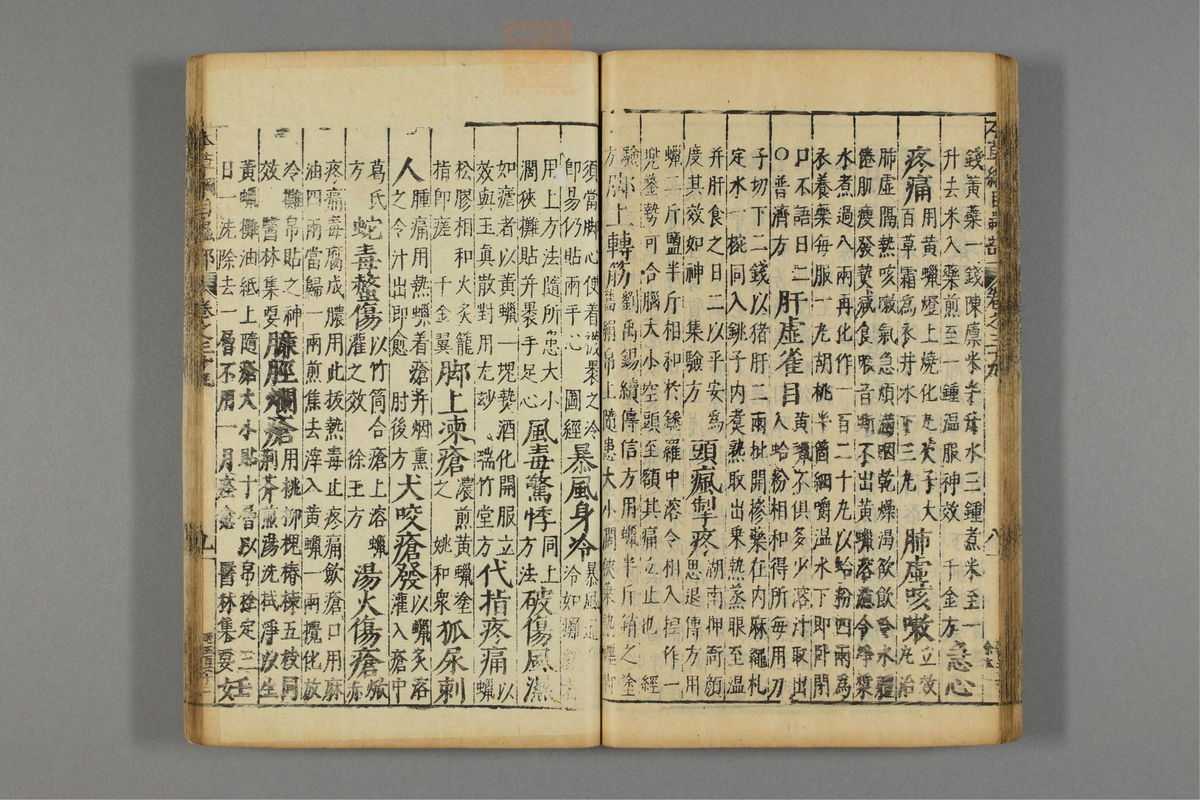 錢黃藥一錢陳廩米半升水三鍾煮米至一
升去米入藥煎至一鍾溫服神效 千金方 急心
疼痛 用黃蠟燈上燒化丸芡子大
百草霜爲衣井水下三丸 肺虛咳嗽 立效丸治
肺虛膈熱咳嗽氣急煩滿咽乾燥渴欲飲冷水體
倦肌瘦發熱減食喉音嘶不出黃蠟溶濾令淨漿
水煮過八兩再化作一百二十丸以蛤粉四兩爲
衣養藥每服一丸胡桃半箇細嚼溫水下即卧閉
口不語日二
○普濟方 肝虛雀目 黃蠟不俱多少溶汁取出
入蛤粉相和得所每用刀
子切下二錢以猪肝二兩批開摻藥在内麻繩扎
定水一椀同入銚子内煮熟取出乘熱蒸眼至溫
并肝食之日二以平安爲
度其效如神 集驗方 頭瘋掣疼 湖南押衙顔
思退傳方用
蠟二斤鹽半斤相和於鎈羅中溶令相入捏作一
兜鍪勢可合腦大小空頭至額其痛立止也 經
驗
方 脚上轉筋 劉禹錫續傳信方用蠟半斤銷之塗
舊絹帛上隨患大小濶狹乘熱
須當脚心便着襪裹之冷
即易仍貼兩手心 圖經 暴風身冷 暴風通
冷如
用上方法隨所患大小
濶狹攤貼并裹手足心 風毒驚悸 同上
方法 破傷風濕
如瘧者以黃蠟一塊熱酒化開服立
效與玉眞散對用尤玅 瑞竹堂方 代指疼痛 以
蠟
松膠相和火炙籠
指即瘥 千金翼 脚上凍瘡 濃煎黃蠟塗
之 姚和衆 狐尿刺
人 腫痛用熱蠟着瘡并烟熏
之令汁出即愈 肘後方 犬咬瘡發 以蠟炙溶
灌入瘡中
葛氏
方 蛇毒螫傷 以竹筒合瘡上溶蠟
灌之效 徐王方 湯火傷瘡 㷔赤
疼痛毒腐成膿用此拔熱毒止疼痛斂瘡口用麻
油四兩當歸一兩煎焦去滓入黃蠟一兩攪化放
冷攤帛貼之神
效 醫林集要 臁脛爛瘡 用桃柳槐椿楝五枝同
荆芥煎湯洗拭淨以生
黃蠟攤油紙上隨瘡大小貼十層以帛拴定三
日一洗除去一層不用一月痊愈 醫林集要 妊女